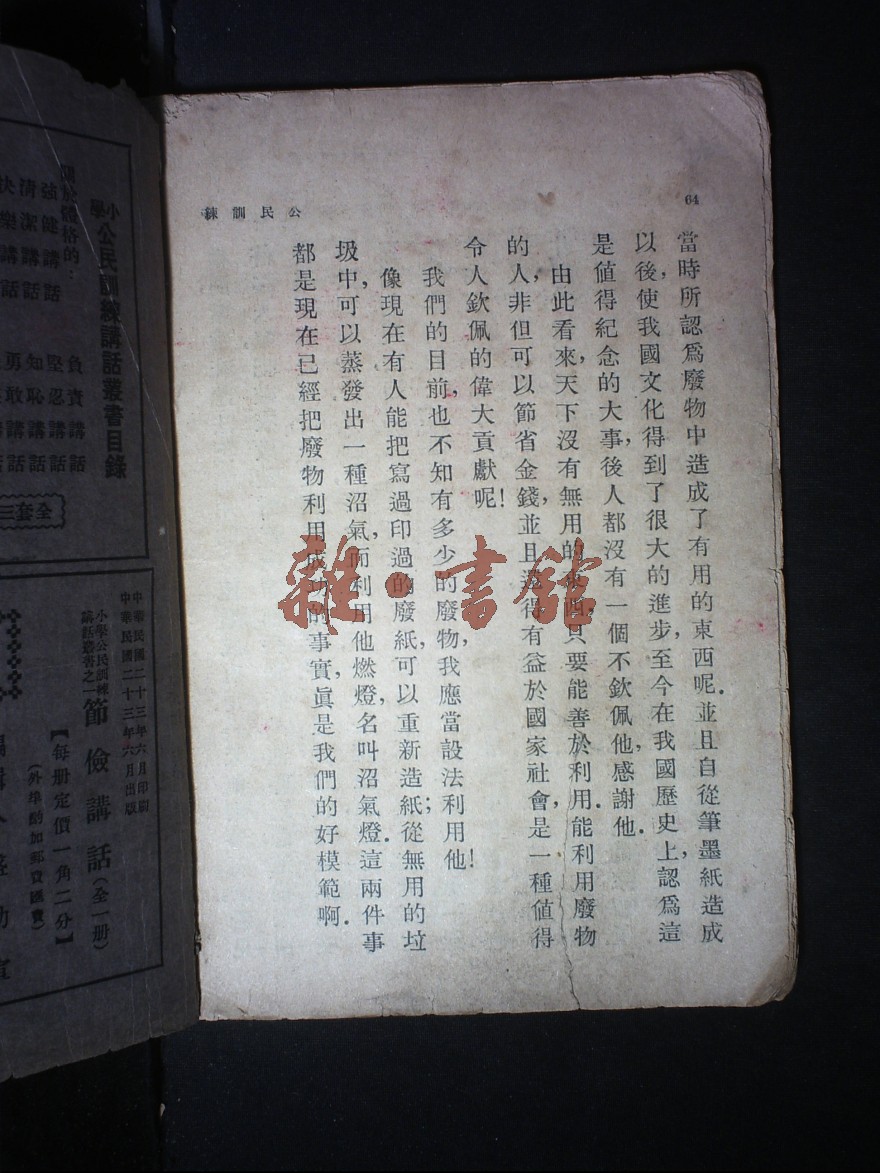 64
公民訓練
當時所認爲廢物中造成了有用的東西呢.並且自從筆墨紙造成
以後,使我國文化得到了很大的進步,至今在我國歷史上,認爲這
是值得紀念的大事,後人都沒有一個不欽佩他,感謝他.
由此看來,天下沒有無用的東西,只要能善於利用.能利用廢物
的人,非但可以節省金錢,並且還得有益於國家社會,是一種值得
令人欽佩的偉大貢獻呢!
我們的目前,也不知有多少的廢物,我應當設法利用他!
像現在有人能把寫過印過的廢紙,可以重新造紙;從無用的垃
圾中,可以蒸發出一種沼氣,而利用他燃燈,名叫沼氣燈.這兩件事
都是現在已經把廢物利用成功的事實,眞是我們的好模範啊.
雜·書館
小學公民訓練講話叢書目錄
限於體格的:
強健講話
清潔講話
快樂講話
負責講話
堅忍講話
知恥講話
勇敢講話
全套三
中華民國二十三年六月印刷
中華民國二十三年六月出版
小學公民訓練講話叢書之一
節儉講話(全一册)
【每册定價一角二分】
(外埠酌加郵費匯費)